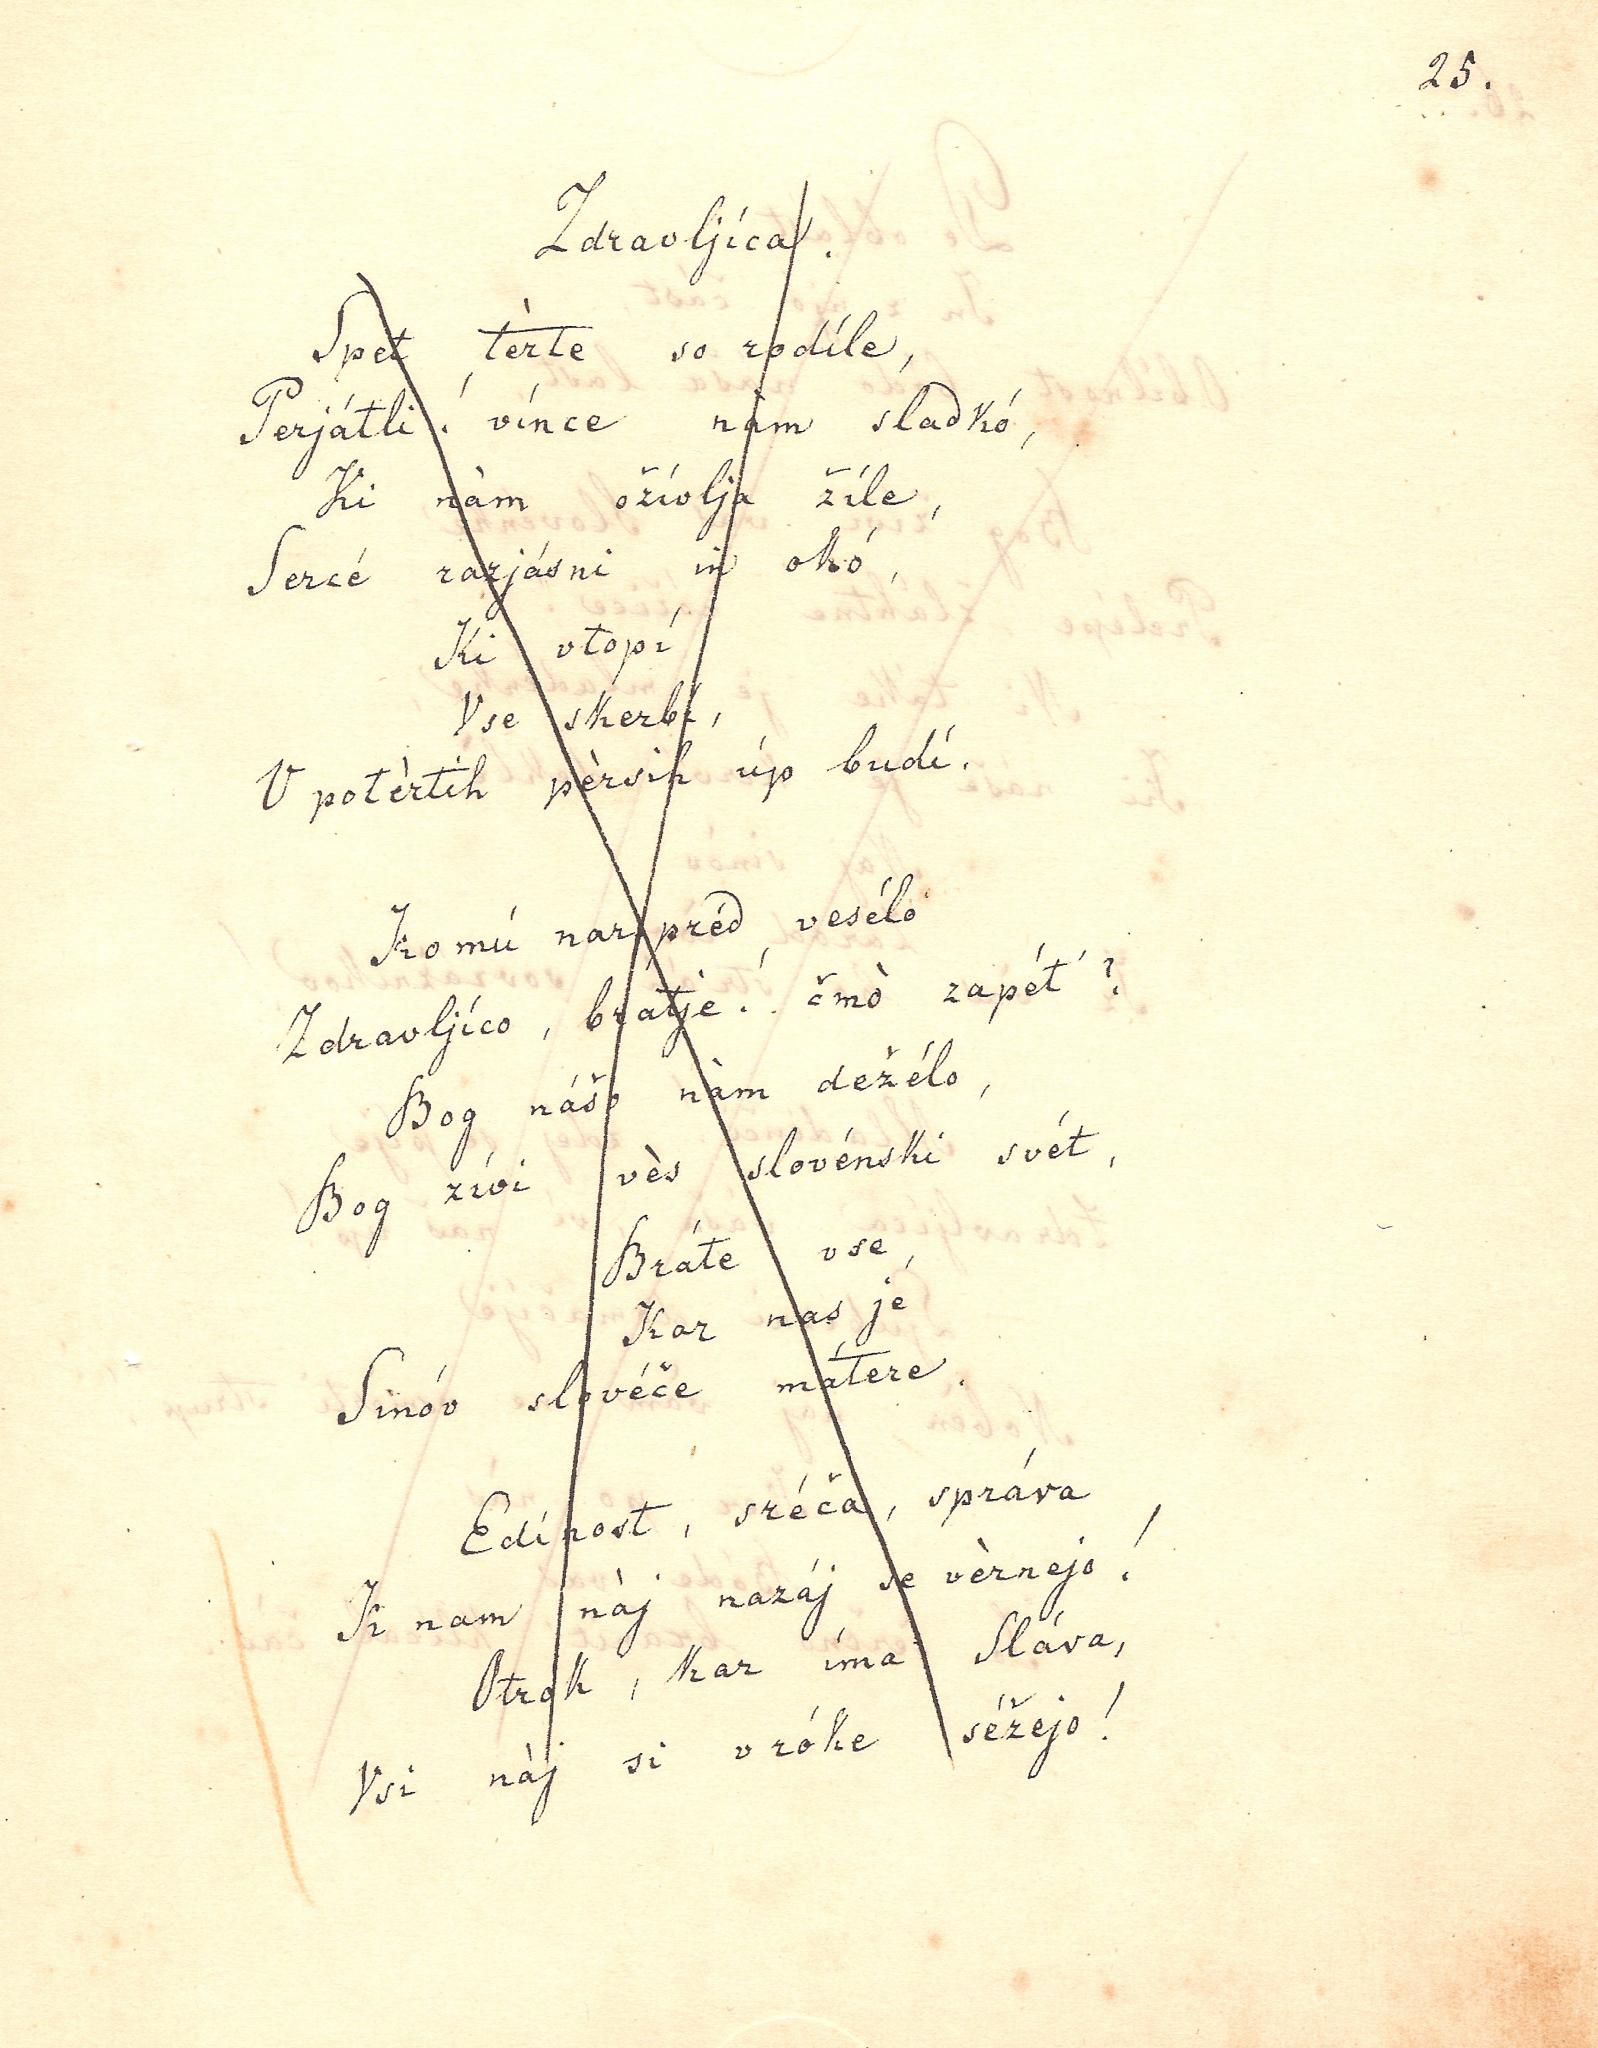 25.
Zdravljíca.
Spet tèrte so rodíle,
Perjátli! vínce nàm sladkó,
Ki nàm ožívlja žíle,
Sercé razjásni in okó,
Ki vtopí
Vse skerbí,
V potèrtih pèrsih úp budí.
Komú narpréd vesélo
Zdravljíco, brátje! čmò zapét'?
Bog nášo nàm dežélo,
Bog žívi vès slovénski svét,
Bráte vse,
Kar nas je
Sinóv slovéče mátere.
Edínost, sréča, správa
K nam nàj nazáj se vèrnejo!
Otrok, kar íma Sláva,
Vsi nàj si v róke séžejo!